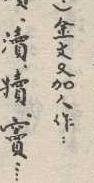 )金文又加人作…
瀆、犢、竇…